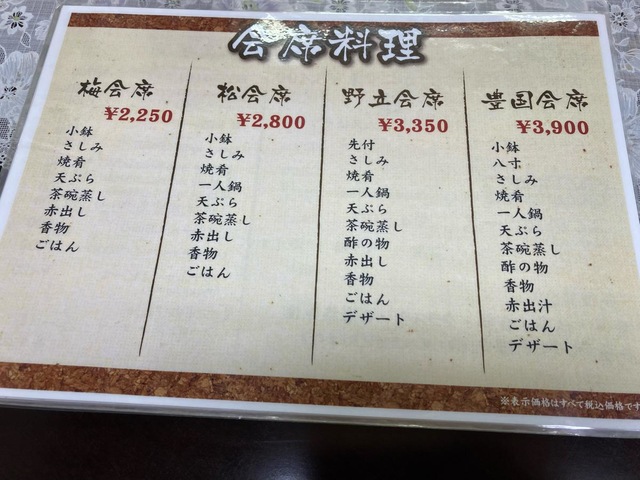 会席料理
梅会席
¥2,250
小鉢
さしみ
焼肴
天ぷら
茶碗蒸し
赤出し
香物
ごはん
松会席
¥2,800
小鉢
さしみ
焼肴
一人鍋
天ぷら
茶碗蒸し
赤出し
香物
ごはん
野立会席
¥3,350
先付
さしみ
焼肴
一人鍋
天ぷら
茶碗蒸し
酢の物
赤出し
香物
ごはん
デザート
豊国会席
¥3,900
小鉢
八寸
さしみ
焼肴
一人鍋
天ぷら
茶碗蒸し
酢の物
香物
赤出汁
ごはん
デザート
※表示価格はすべて税込価格です